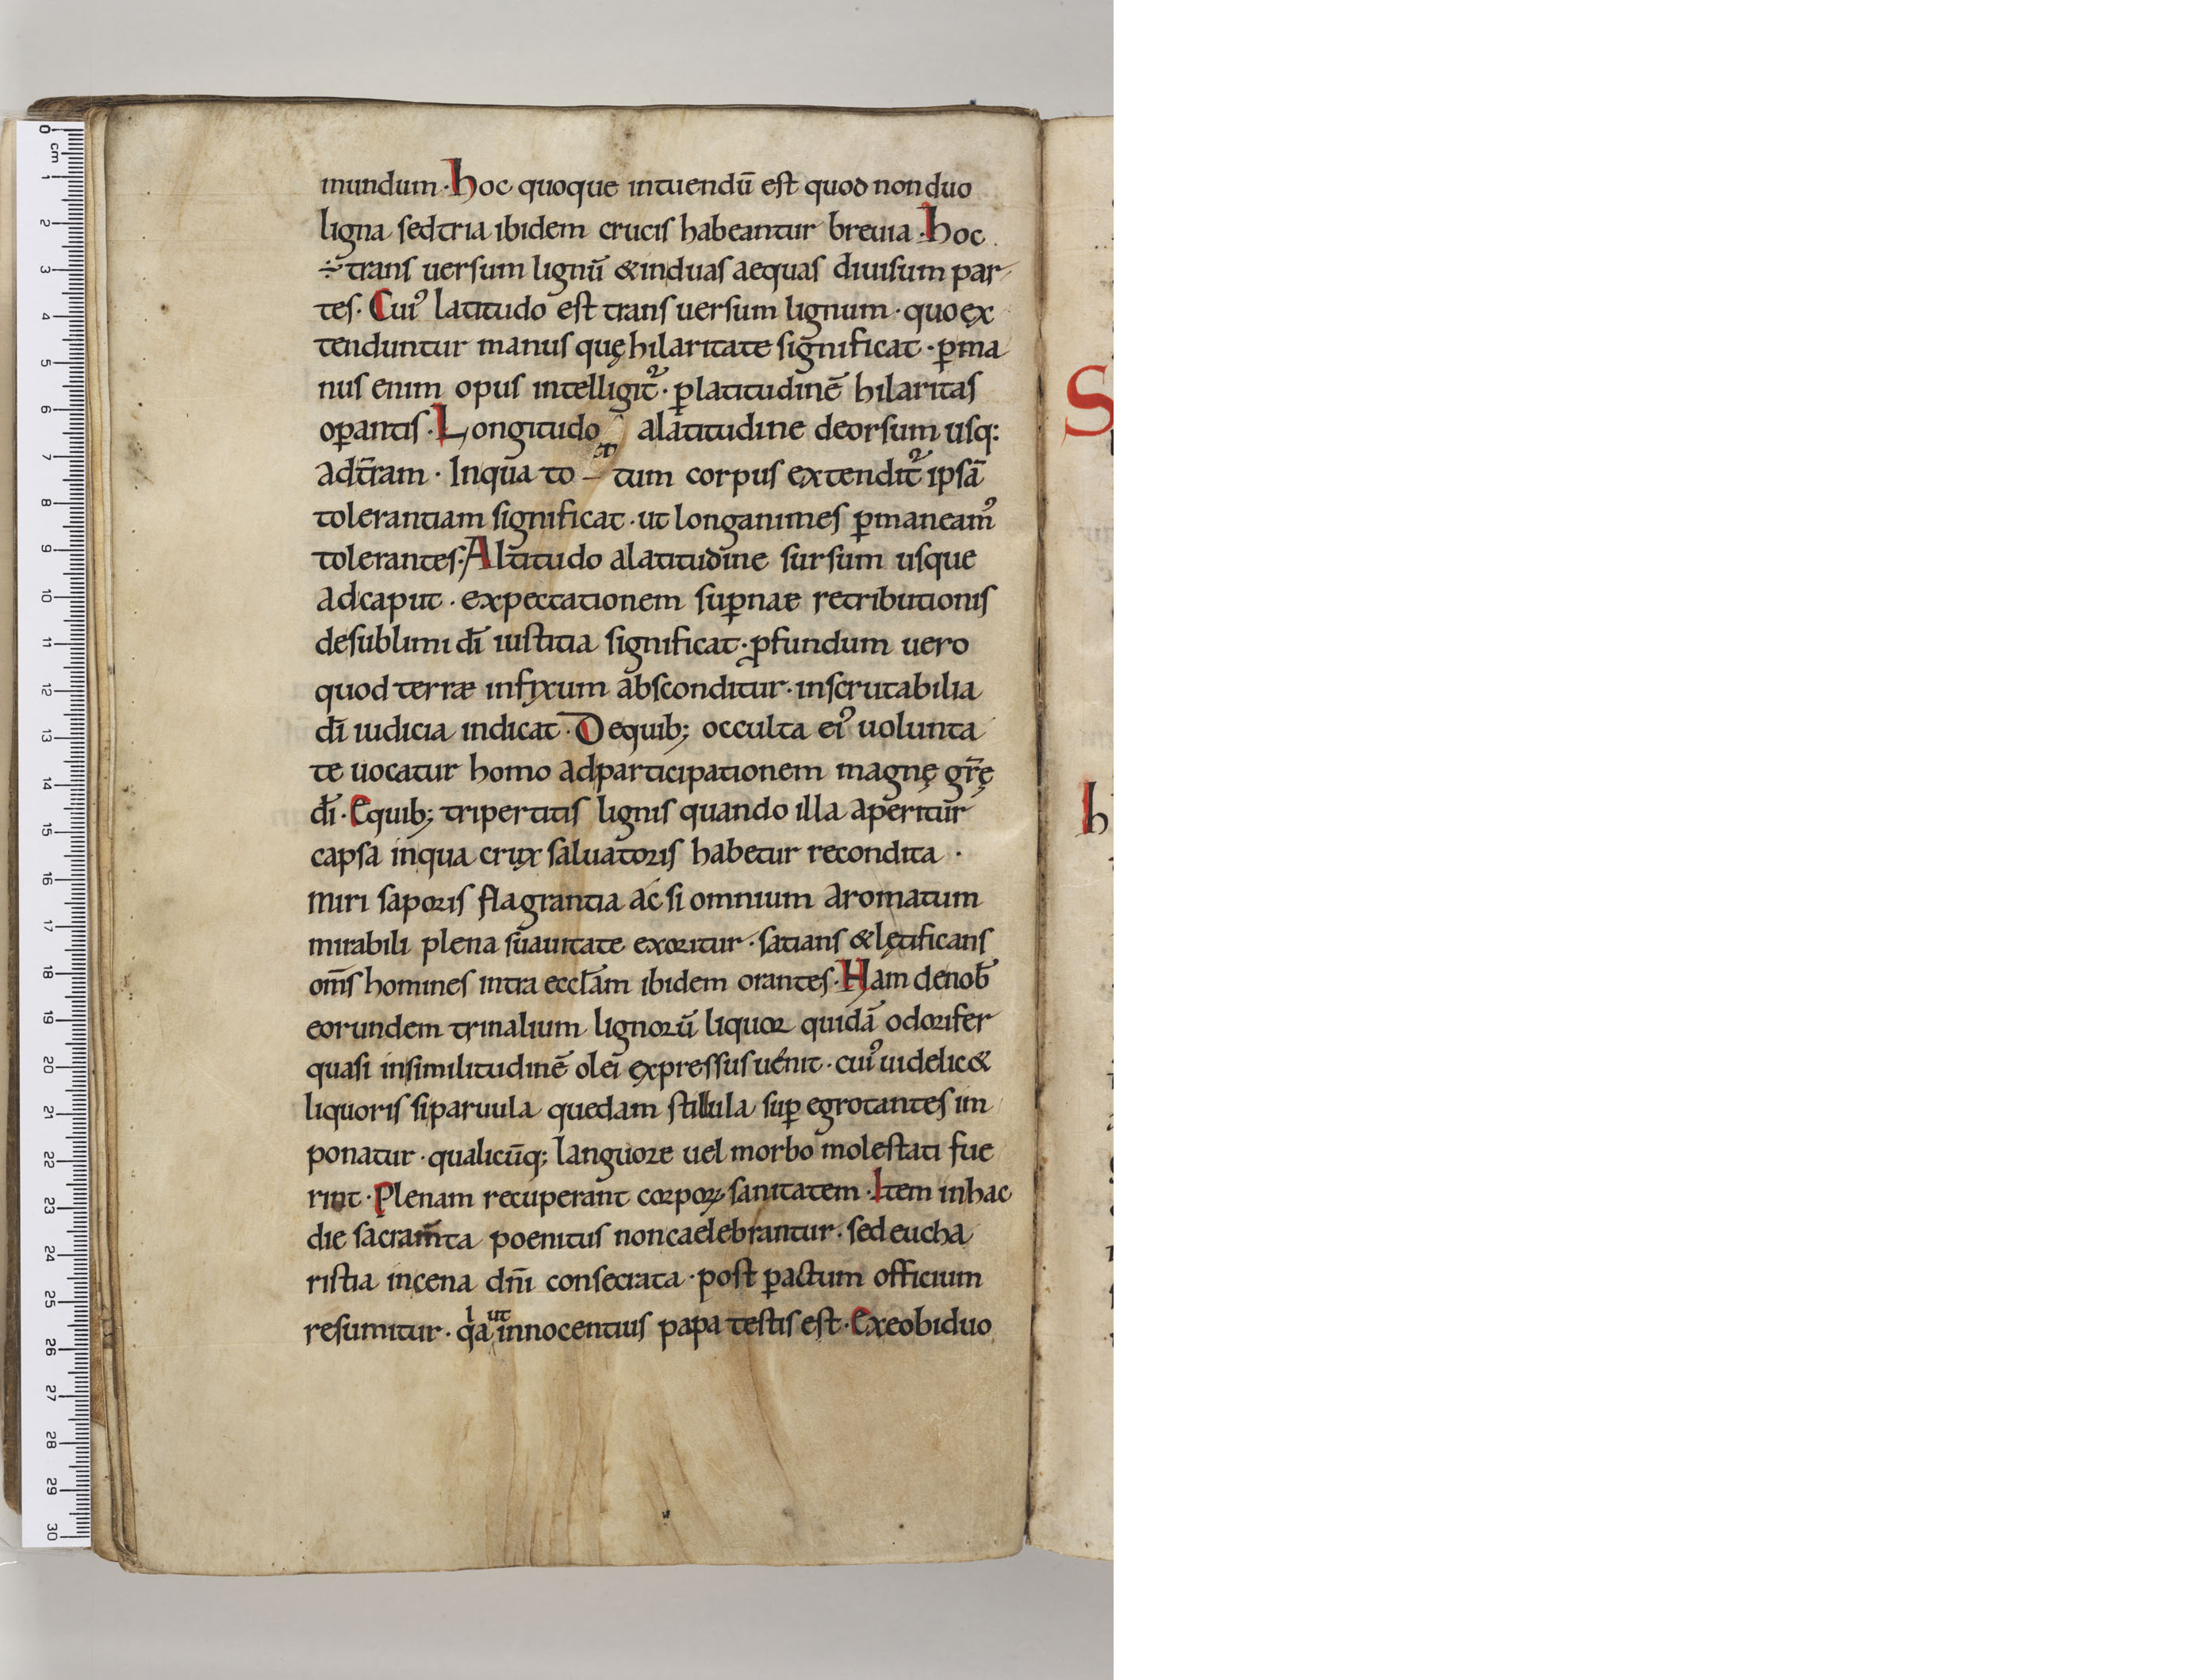 mundum · hoc quoque intuendū est quod non duo
ligna sed tria ibidem crucis habeantur breuia · hoc
÷ trans uersum lignū & induas aequas diuisum par
tes · Cui᾽ latitudo est trans uersum lignum · quo ex
tenduntur manus quę hilaritate significat · ꝑ ma
nus enim opus intelligit᷑ · ꝑ latitudinē hilaritas
oꝑantis · Longitudo a latitudine deorsum usq:
ad t̄ram · In qua to tum corpus extendit᷑ ipsā
tolerantiam significat · ut longanimes ꝑmaneam᾽
tolerantes · Altitudo a latitudine sursum usque
ad caput · expectationem suꝑnae retributionis
de sublimi dī iustitia significat · ꝓfundum uero
quod terræ infixum absconditur · inscrutabilia
dī iudicia indicat · De quib; occulta ei᾽ uolunta
te uocatur homo ad participationem magnę gr̄ę
dī · E quib; tripertitis lignis quando illa aperitur
capsa in qua crux saluatoris habetur recondita ·
miri saporis flagrantia ac si omnium aromatum
mirabili plena suauitate exoritur · satians & lętificans
om̄s homines intra eccłam ibidem orantes · Nam de nob̄
eorundem trinalium lignorū liquor quidā odorifer
quasi in similitudinē olei expressus uenit · cui᾽ uidelic&
liquoris si paruula quedam stillula suꝑ egrotantes im
ponatur · qualicūq; languore uel morbo molestati fue
rint · Plenam recuperant corpoꝝ sanitatem · Item in hac
die sacram̄ta poenitus non caelebrantur · sed eucha
ristia in cena dn̄i consecrata · post ꝑactum officium
resumitur · qa ut innocentius papa testis est · Ex eo biduo
S
h